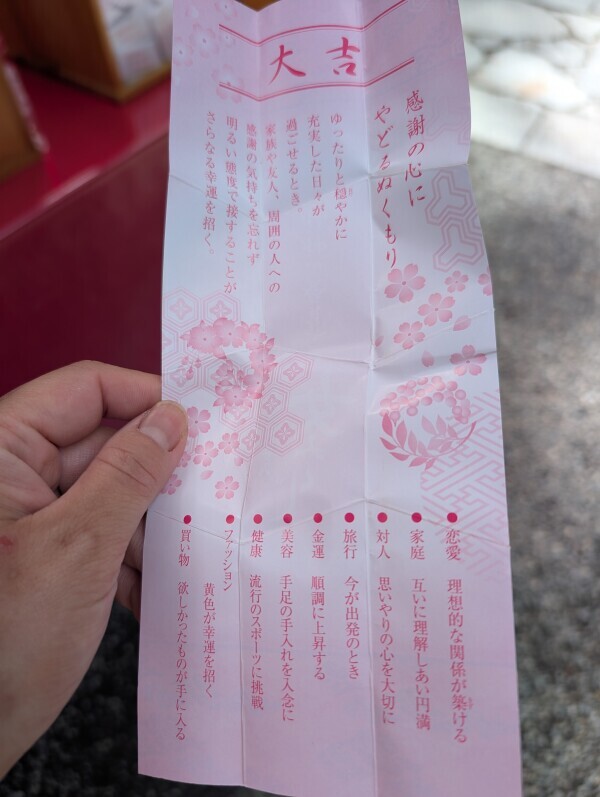 大吉
感謝の心に
やどるぬくもり
ゆったりと穏やかに
充実した日々が
過ごせるとき。
家族や友人、周囲の人への
感謝の気持ちを忘れず
明るい態度で接することが
さらなる幸運を招く。
●恋愛 理想的な関係が築ける
●家庭 互いに理解しあい円満
●対人 思いやりの心を大切に
●旅行 今が出発のとき
●金運 順調に上昇する
●美容 手足の手入れを入念に
●健康 流行のスポーツに挑戦
●ファッション
黄色が幸運を招く
●買い物 欲しかったものが手に入る